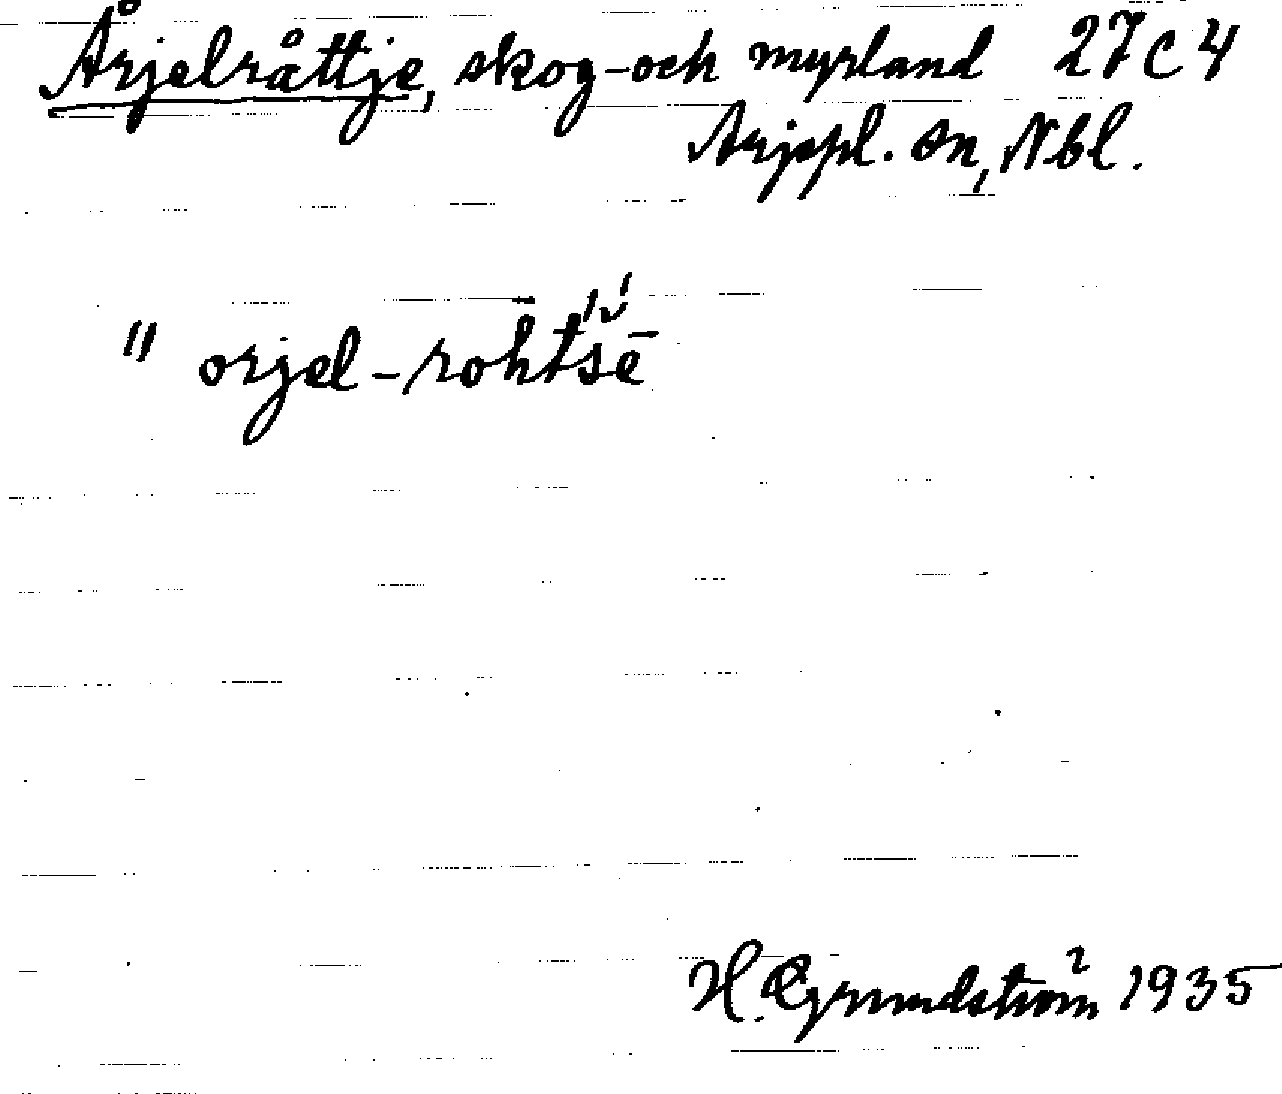 Årjelråttje, skog- och myrland 27 C 4
Arjepl. sn, Nbl.
" orjel-rohtsē
H. Grundström 1935